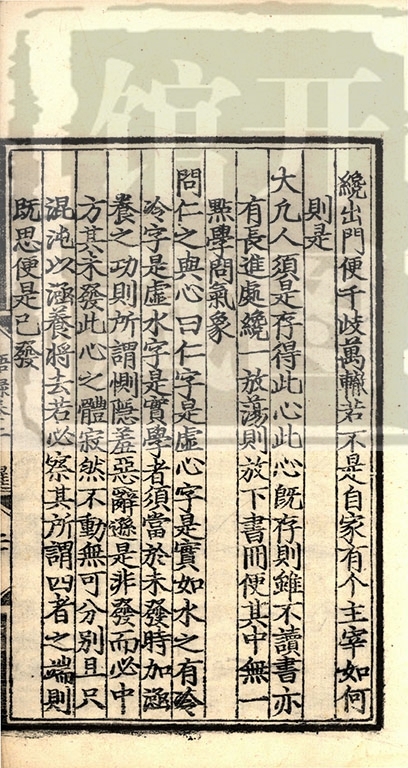 纔出門便千歧萬轍若不是自家有个主宰如何
則是
大凢人須是存得此心此心旣存則雖不讀書亦
有長進處纔一放蕩則放下書冊便其中無一
點學問氣象
問仁之與心曰仁字是虛心字是實如水之有冷
冷字是虛水字是實學者須當於未發時加涵
養之功則所謂惻隱羞惡辭遜是非發而必中
方其未發此心之體寂然不動無可分別且只
混沌以涵養將去若必察其所謂四者之端則
旣思便是已發